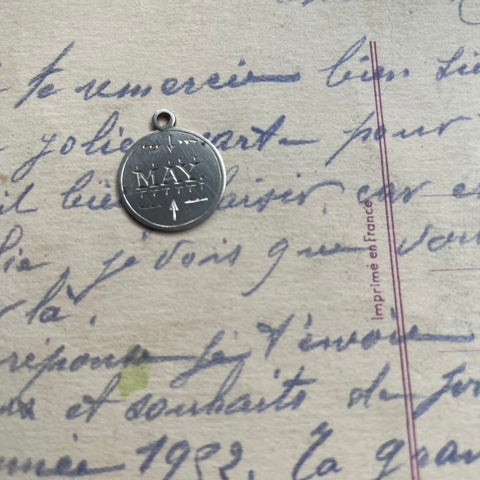 je te remercie bien
jolie carte pour
il bien plaisir, car
MAY
je vois que vous
là.
Imprimé en France
réponse je t'envoie
et souhaits de
année 1922. Ta gran